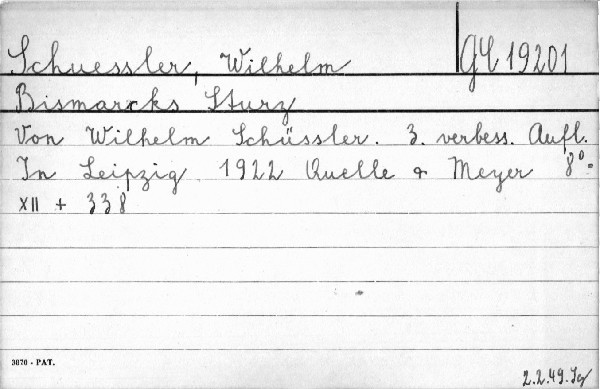 Schuessler, Wilhelm
GY 19201
Bismarcks Sturz
Von Wilhelm Schüssler. 3. verbess. Aufl.
In Leipzig. 1922 Quelle & Meyer 8°.
XII + 338
3070 - PAT.
2.2.49.